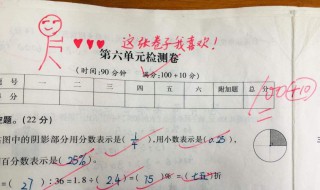 这张卷子我喜欢!
第六单元检测卷
(时间:90分钟 满分:100+10分)
号 一 二 三 四 五 六 附加题 总分
分 100+10
题。(22分)
图中的阴影部分用分数表示是( 1/4 ),用小数表示是( 0.25 ),
百分数表示是( 25% )。
( 27 ):36=1.8÷( 2.4 )=( 75 )%=( 七五 )折